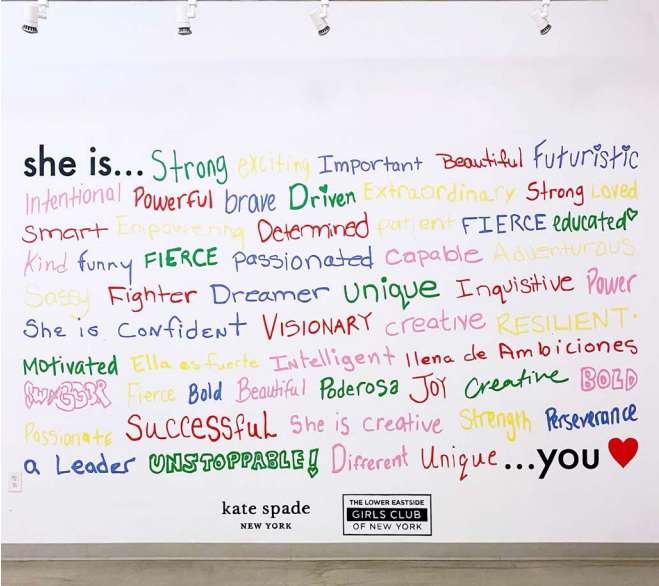 she is... Strong exciting Important Beautiful Futuristic
Intentional Powerful brave Driven Extraordinary Strong Loved
Smart Empowering Determined patient FIERCE educated
Kind funny FIERCE passionated Capable Adventurous
Sassy Fighter Dreamer unique Inquisitive Power
She is CONFIDENT VISIONARY creative RESILIENT.
Motivated Ella es fuerte Intelligent llena de Ambiciones
Fierce Bold Beautiful Poderosa JOY Creative BOLD
Passionate Successful She is creative Strength Perseverance
a Leader UNSTOPPABLE! Different Unique ...you
kate spade
NEW YORK
THE LOWER EASTSIDE
GIRLS CLUB
OF NEW YORK